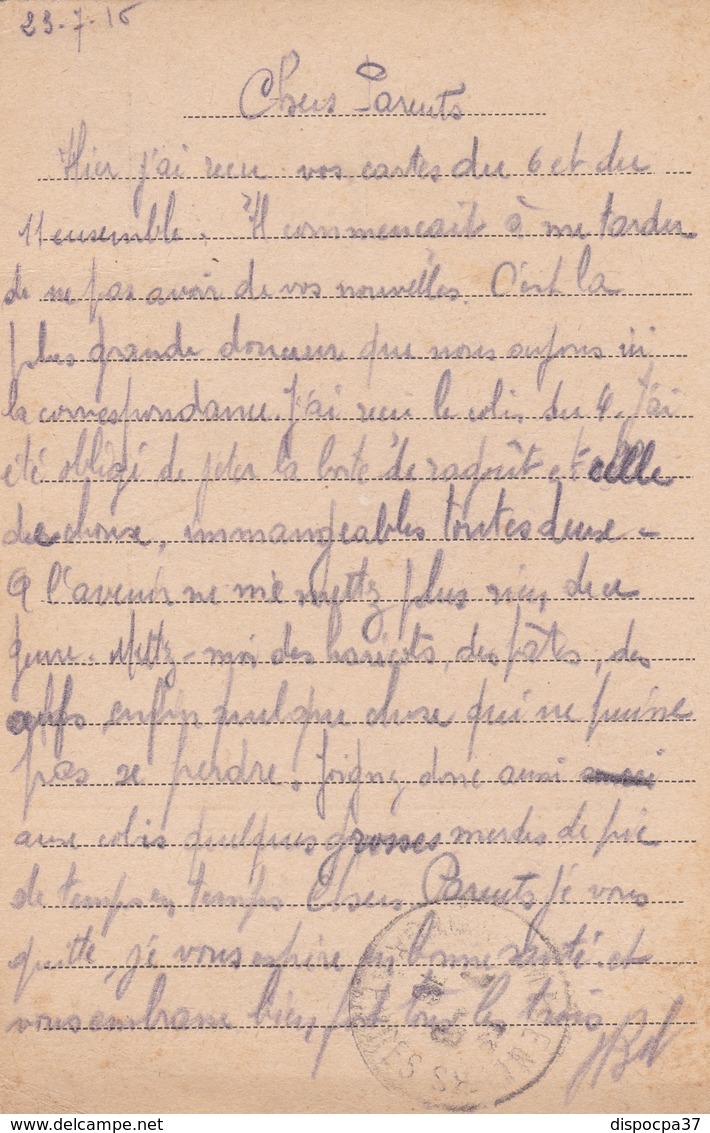 23-7-16
Chers Parents
Hier j'ai recu vos cartes du 6 et du
11 ensemble. Il commencait à me tarder
de ne pas avoir de vos nouvelles. C'est la
plus grande douceur que nous ayons ici
la correspondance. J'ai recu le colis du 4. J'ai
été obligé de jeter la boite de ragoût et celle
de choux, immangeables toutes deux -
A l'avenir ne me mettez plus rien de ce
genre. Mettez-moi des haricots, des pâtes, des
enfin quelque chose qui ne puisse
pas se perdre. Joignez donc aussi
aux colis quelques grosses de
de temps en temps Chers Parents je vous
quitte, je vous espère en bonne santé et
vous embrasse bien fort tous les trois
dispocpa37